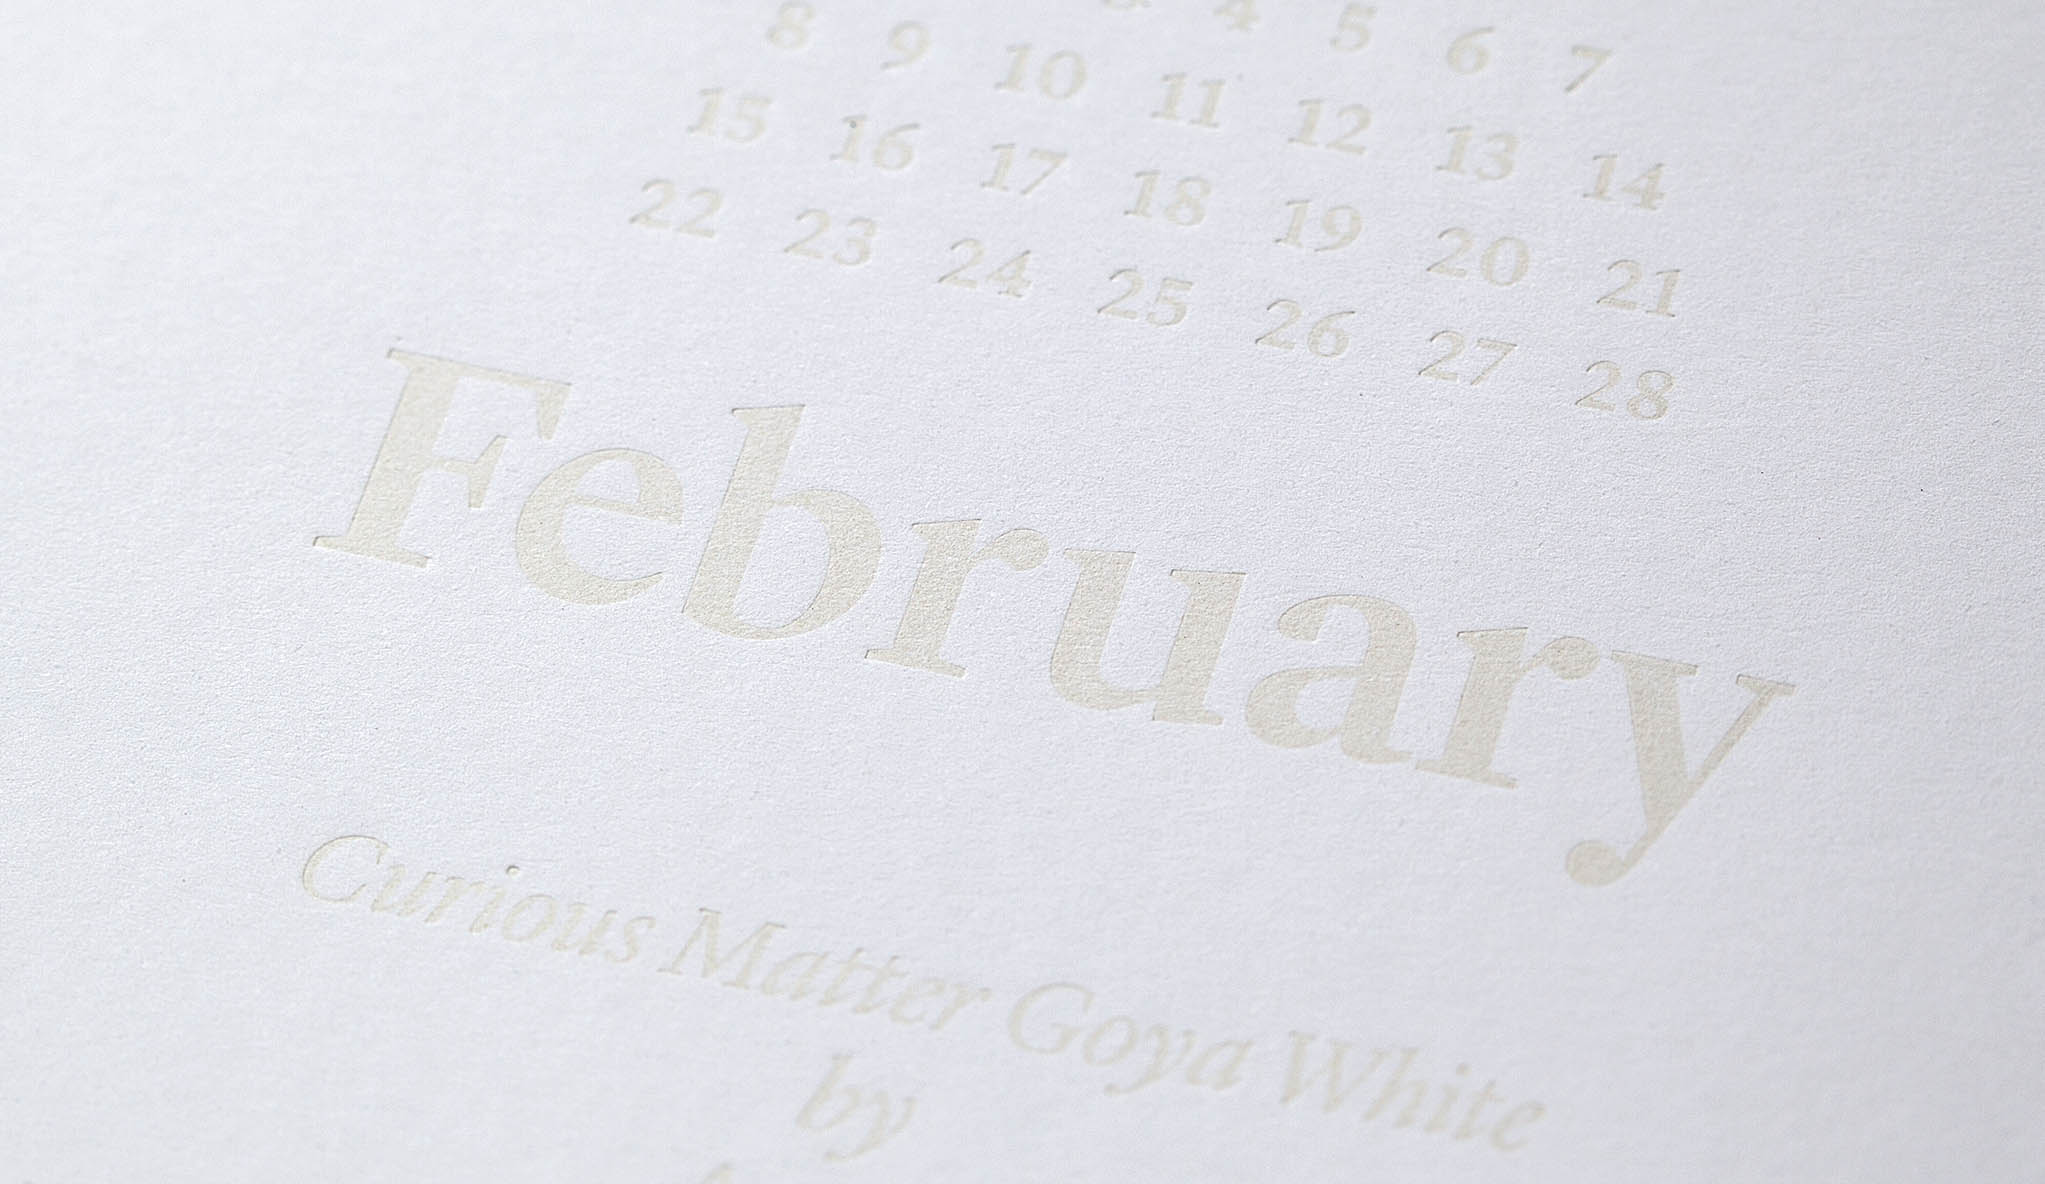 3 4 5 6 7
8 9 10 11 12 13 14
15 16 17 18 19 20 21
22 23 24 25 26 27 28
February
Curious Matter Goya White
by